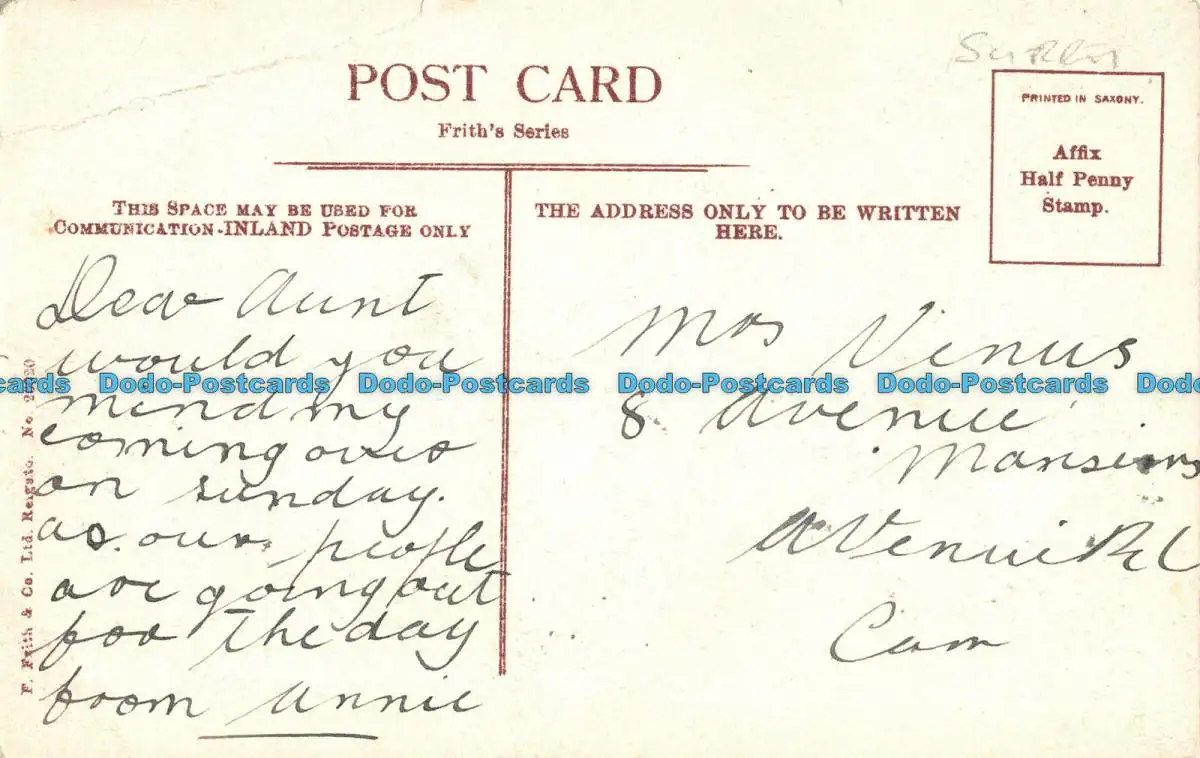 SURREY
POST CARD
Frith's Series
PRINTED IN SAXONY.
Affix
Half Penny
Stamp.
THIS SPACE MAY BE USED FOR
COMMUNICATION-INLAND POSTAGE ONLY
THE ADDRESS ONLY TO BE WRITTEN
HERE.
Dear Aunt
would you
mind my
coming over
on sunday.
as our people
are going out
for the day
from Annie
Mrs Venus
8 Avenue
Mansions
Avenue Rd
Cam
F. Frith & Co. Ltd. Reigate. No.
Dodo-Postcards Dodo-Postcards Dodo-Postcards Dodo-Postcards